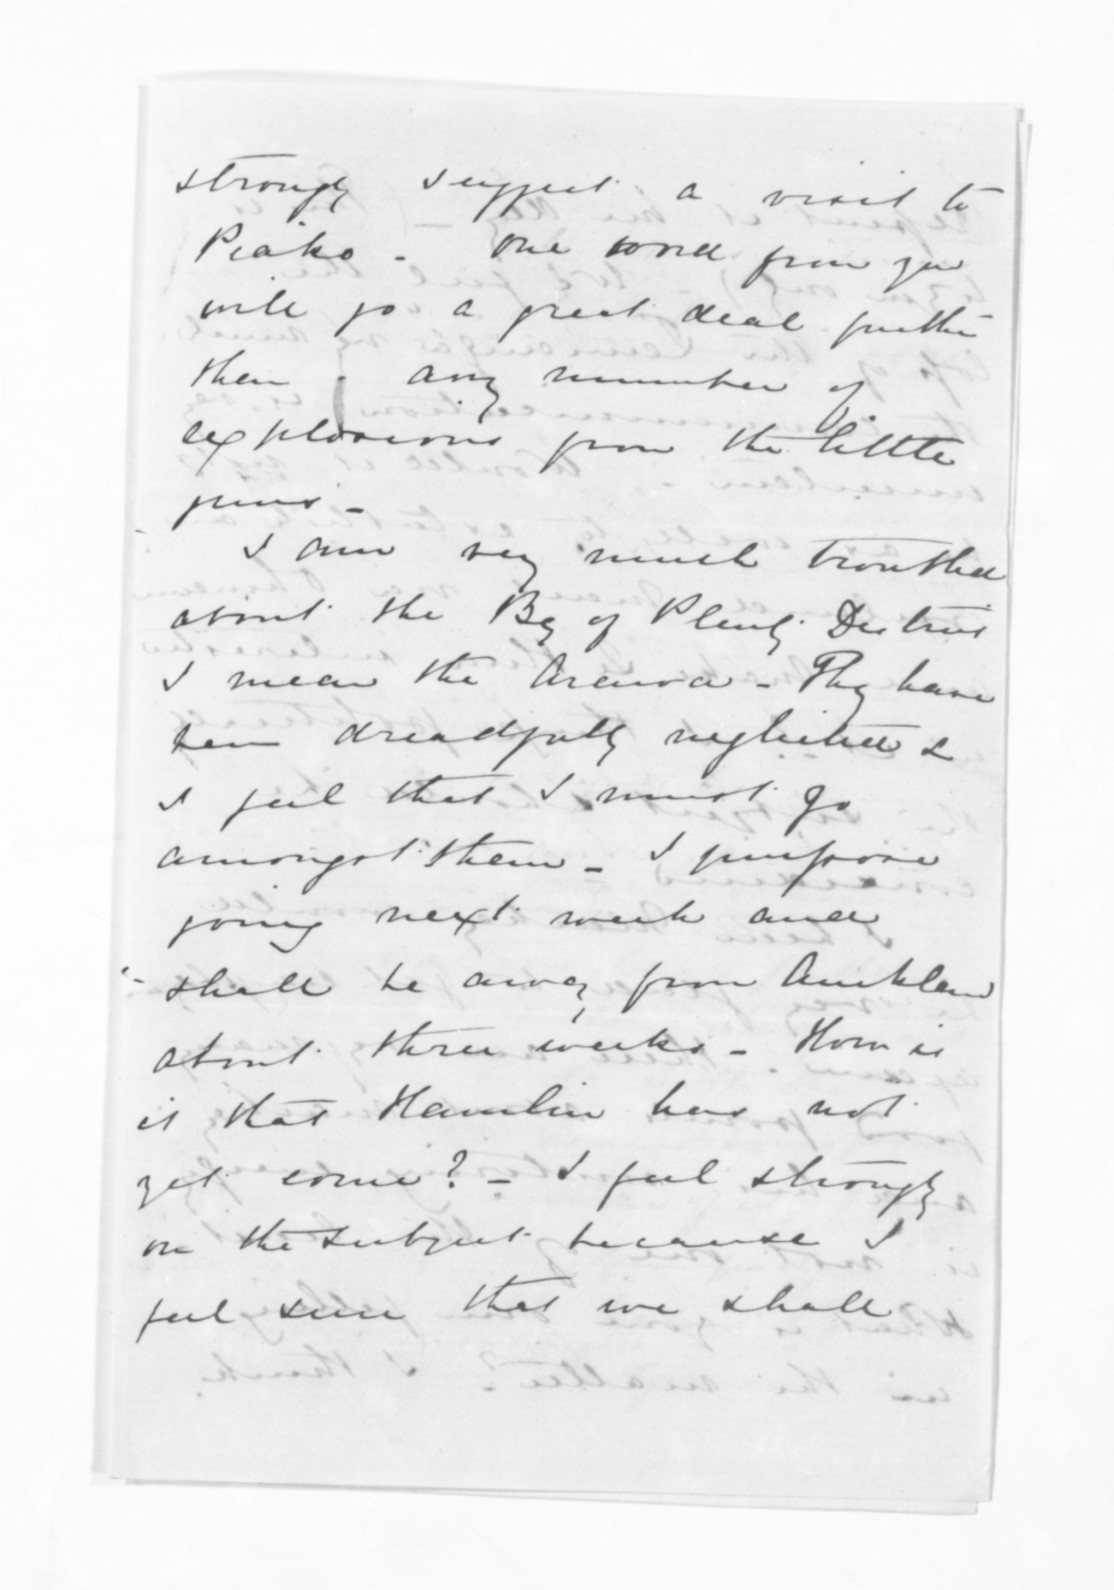 strongly suggest a visit to
Piako - One word from you
will go a great deal further
then any number of
explosions from the little
guns -
I am very much troubled
about the Bay of Plenty District
I mean the Arawa - They have
been dreadfully neglected &
I feel that I must go
amongst them - I purpose
going next week and
shall be away from Auckland
about three weeks - How is
it that Hamlin has not
yet come? - I feel strongly
on the subject because I
feel sure that we shall